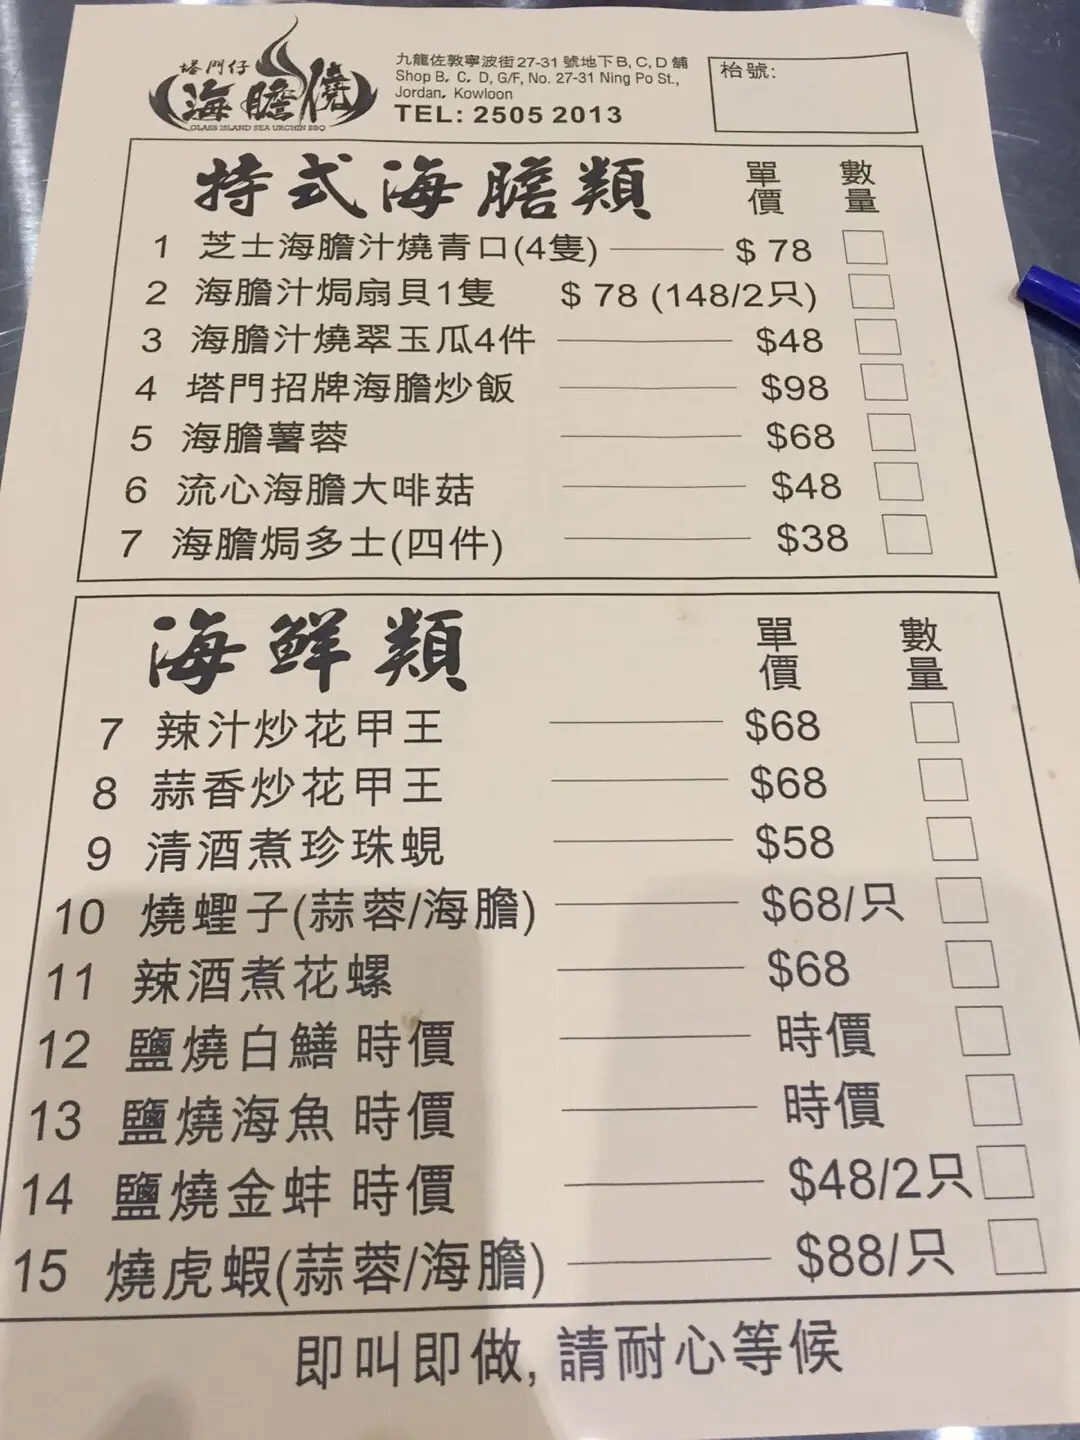 塔門仔
海膽燒
GLASS ISLAND SEA URCHIN BBQ
九龍佐敦寧波街27-31號地下B, C, D舖
Shop B, C, D, G/F, No. 27-31 Ning Po St.,
Jordan, Kowloon
TEL: 2505 2013
枱號:
特式海膽類 單價 數量
1 芝士海膽汁燒青口(4隻) $ 78
2 海膽汁焗扇貝1隻 $ 78 (148/2只)
3 海膽汁燒翠玉瓜4件 $48
4 塔門招牌海膽炒飯 $98
5 海膽薯蓉 $68
6 流心海膽大啡菇 $48
7 海膽焗多士(四件) $38
海鮮類 單價 數量
7 辣汁炒花甲王 $68
8 蒜香炒花甲王 $68
9 清酒煮珍珠蜆 $58
10 燒蟶子(蒜蓉/海膽) $68/只
11 辣酒煮花螺 $68
12 鹽燒白鱔 時價 時價
13 鹽燒海魚 時價 時價
14 鹽燒金蚌 時價 $48/2只
15 燒虎蝦(蒜蓉/海膽) $88/只
即叫即做, 請耐心等候